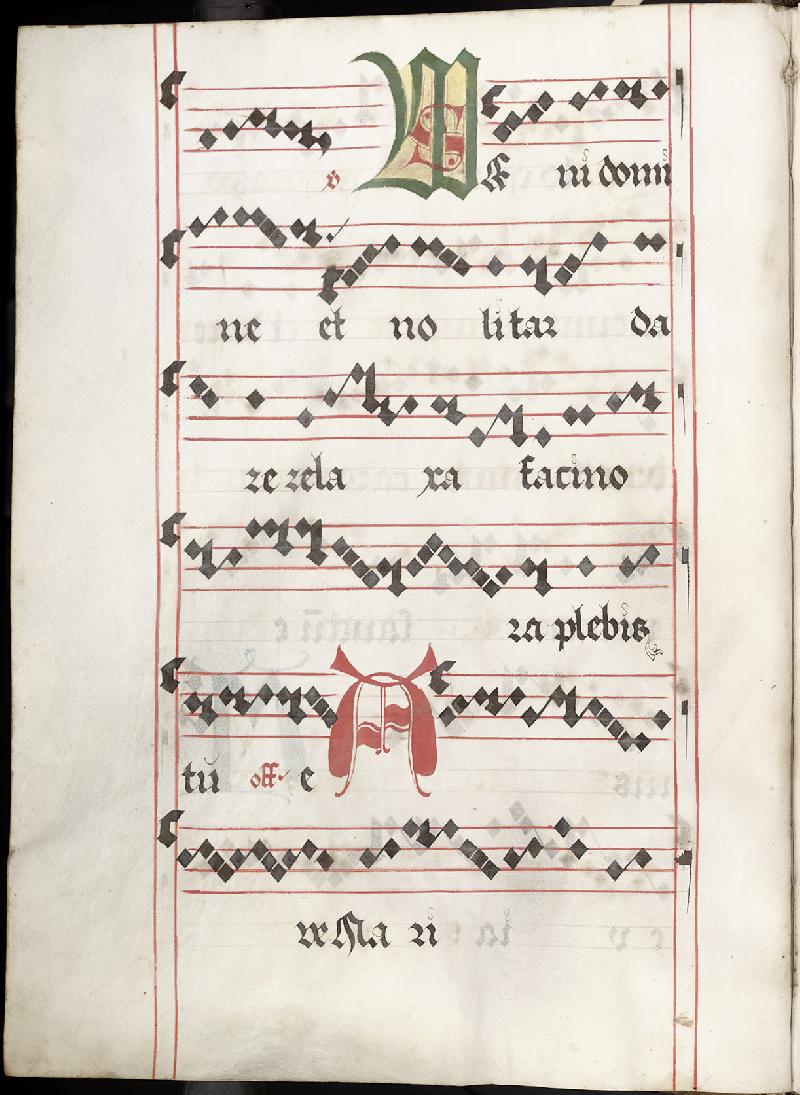 v Veni domi
ne et no li tar da
re rela xa facino
ra plebis
tu off. e A
ve Ma ri